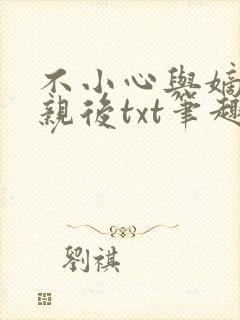 不小心與嫡
親後txt筆趣
劉祺